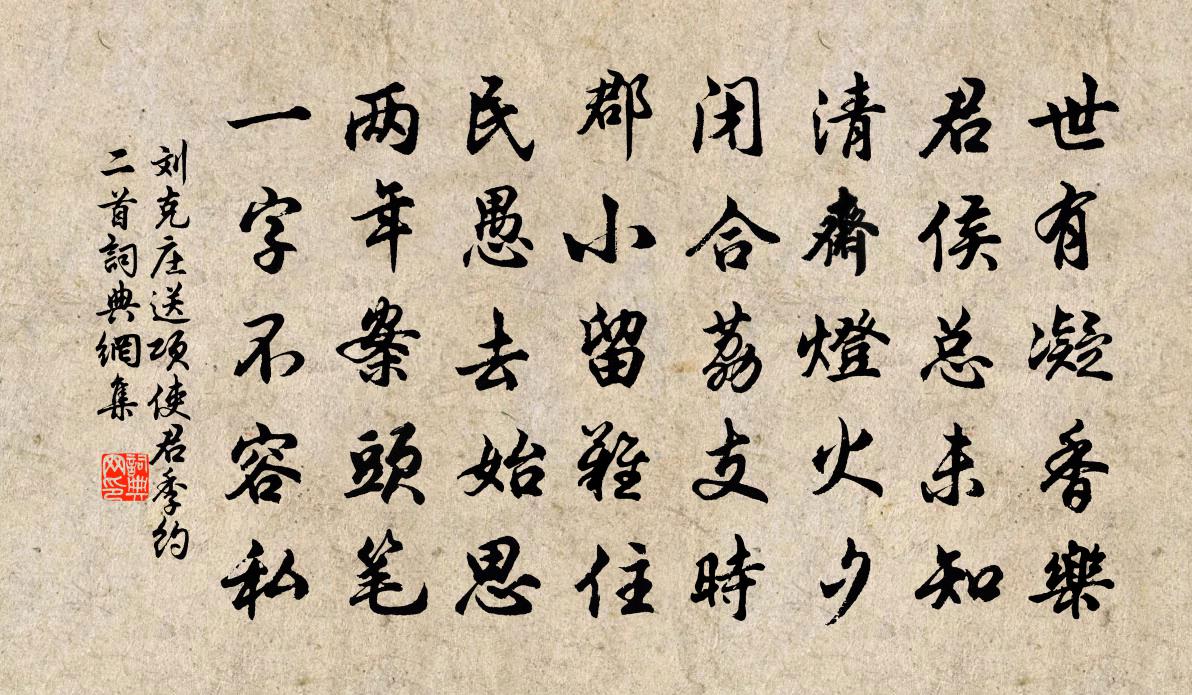 世有凝香樂
君侯总未知
清齋燈火夕
闭合荔支時
郡小留難住
民愚去始思
两年案頭笔
一字不容私
刘克庄送项使君季约
二首詞典網集
詞典
网印